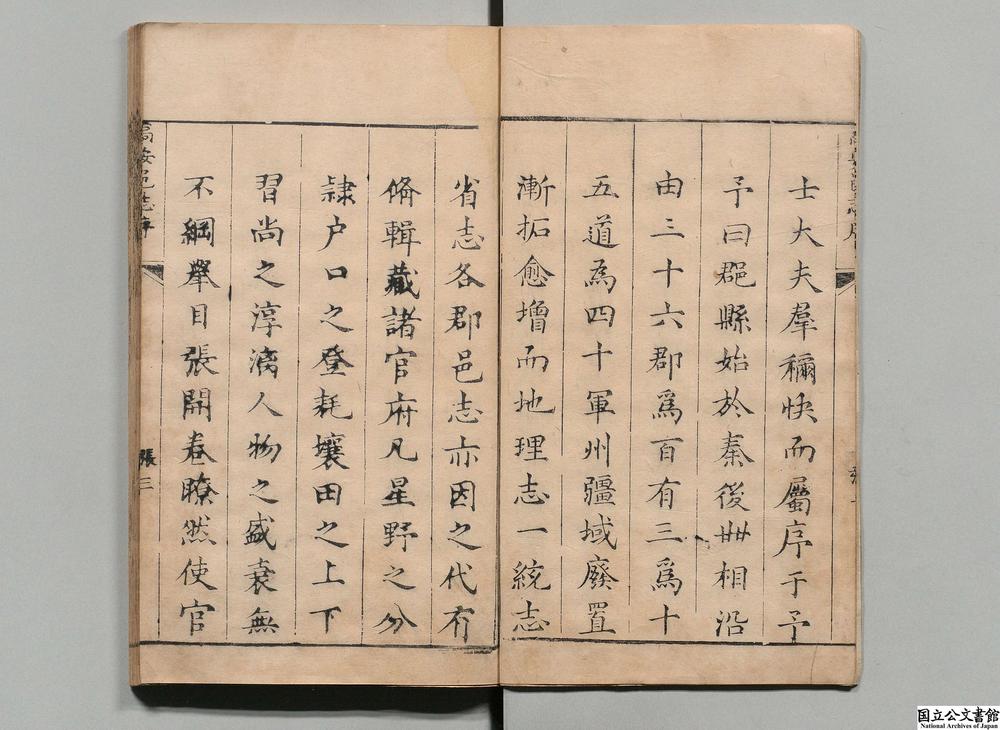 士大夫羣稱快而屬序于予
予曰郡縣始於秦後丗相沿
由三十六郡爲百有三爲十
五道爲四十軍州疆域廢置
漸拓愈增而地理志一統志
省志各郡邑志亦因之代有
脩輯藏諸官府凡星野之分
隷户口之登耗壤田之上下
習尚之淳漓人物之盛衰無
不綱舉目張開卷瞭然使官
高安邑志序
張三
国立公文書館
National Archives of Japan